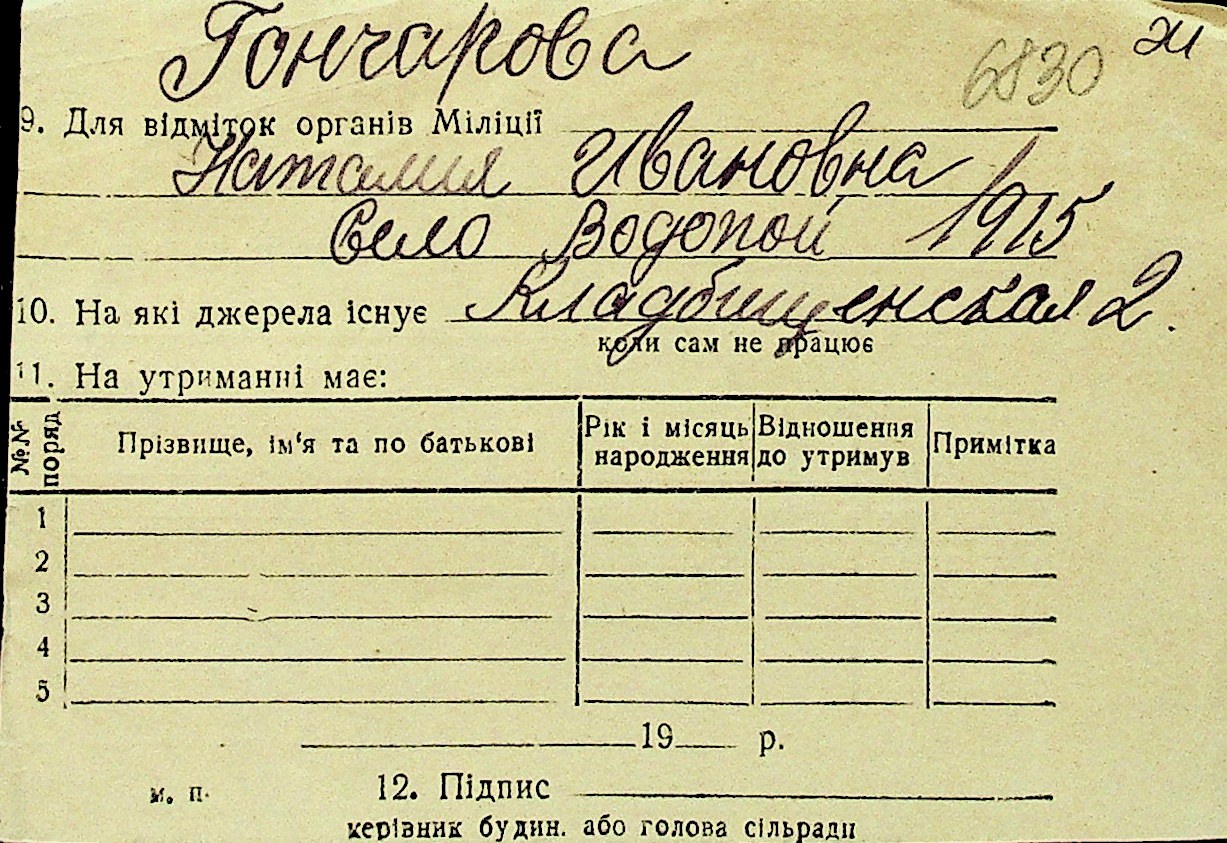 Гончарова 6830 ж
9. Для відміток органів Міліції
Наталия Ивановна
Село Водопой 1915
10. На які джерела існує Кладбищенская 2.
коли сам не працює
11. На утриманні має:
№№ поряд Прізвище, ім‘я та по батькові Рік і місяць народження Відношення до утримув Примітка
1
2
3
4
5
19 р.
м. п. 12. Підпис
керівник будин. або голова сільради